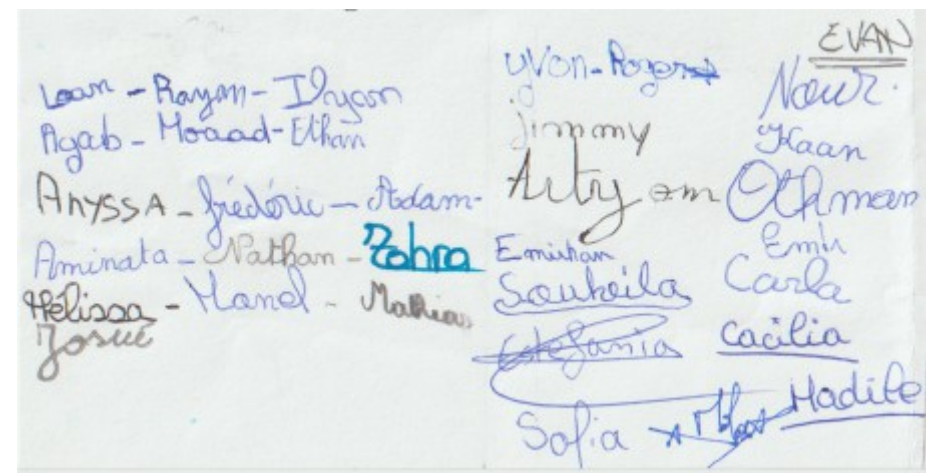 Loan - Rayan - Ilyan
Ayab - Moaad - Ethan
Anyssa - frédéric - Adam -
Aminata - Nathan - Zohra
Hélissa - Manel - Mathias
Josué
Yvon-Roger
Jimmy
Artyom
Emirhan
Souheila
Estefania
Sofia
EVAN
Nour.
Kaan
Othman
Emir
Carla
Cacilia
Hadile